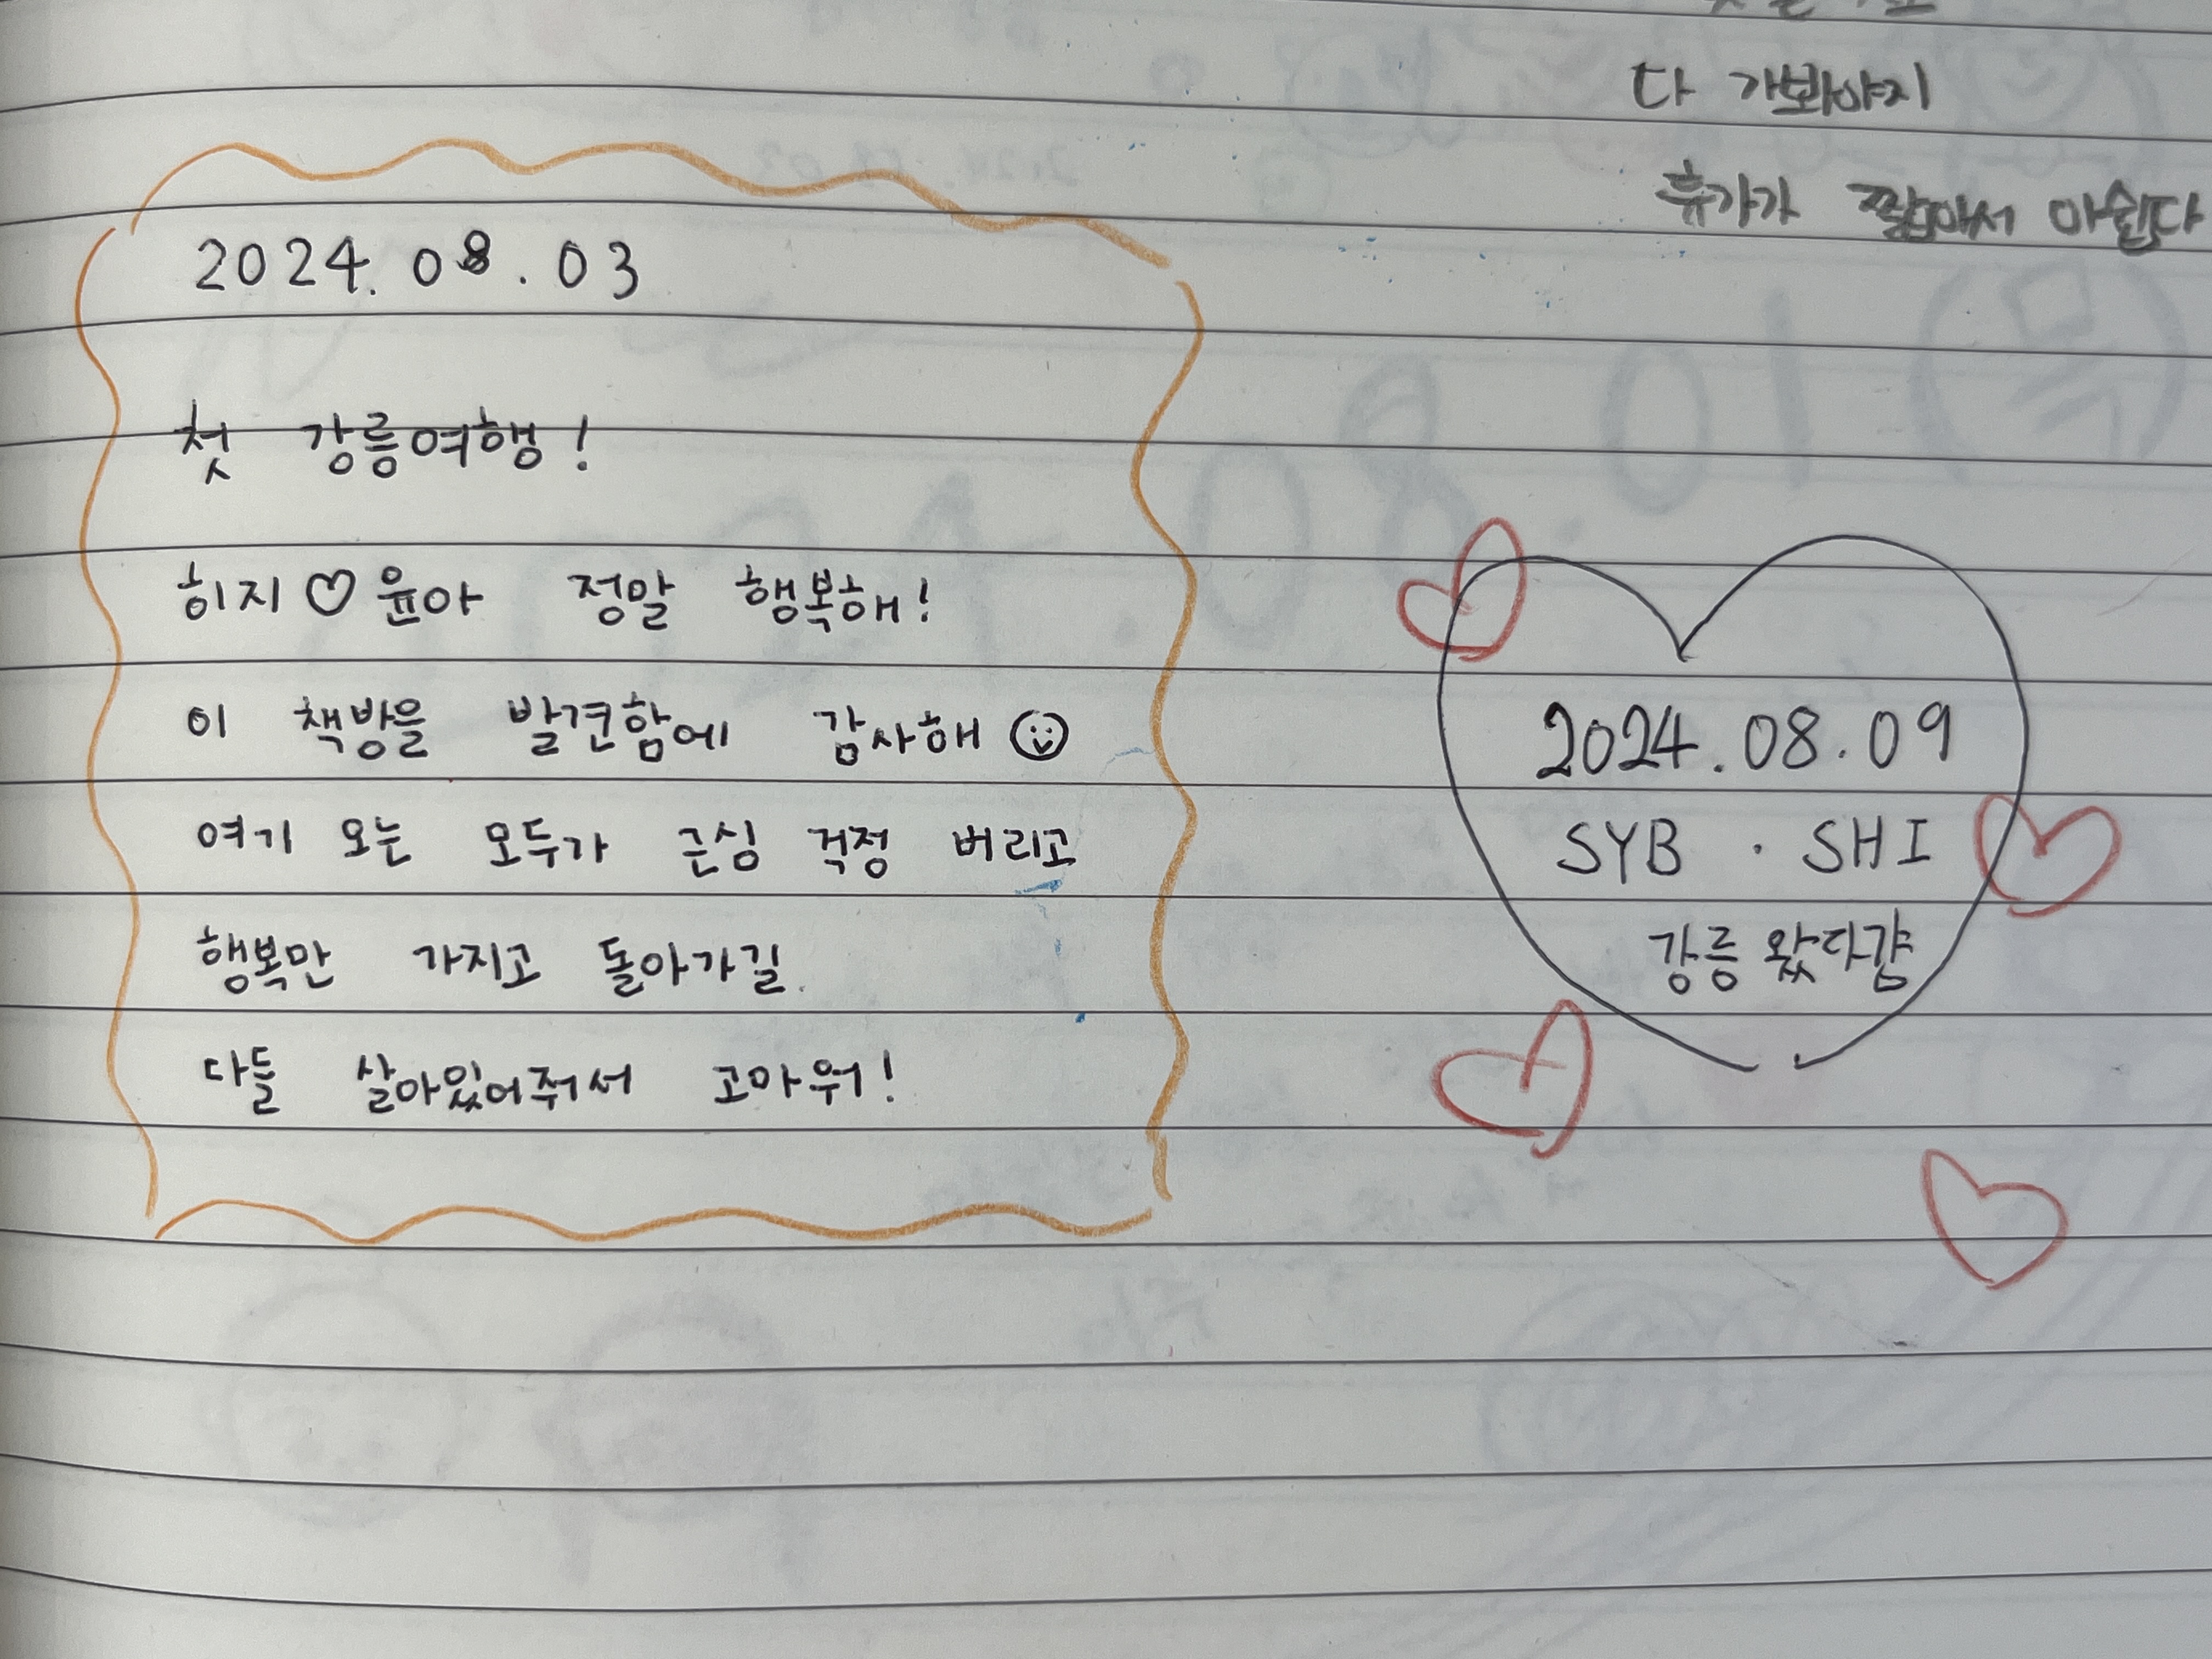 다 가봐야지
휴가가 짧아서 아쉽다
2024.08.03
첫 강릉여행!
히지♡윤아 정말 행복해!
이 책방을 발견함에 감사해 ☺
여기 오는 모두가 근심 걱정 버리고
행복만 가지고 돌아가길.
다들 살아있어줘서 고마워!
2024.08.09
SYB · SHI
강릉 왔다감